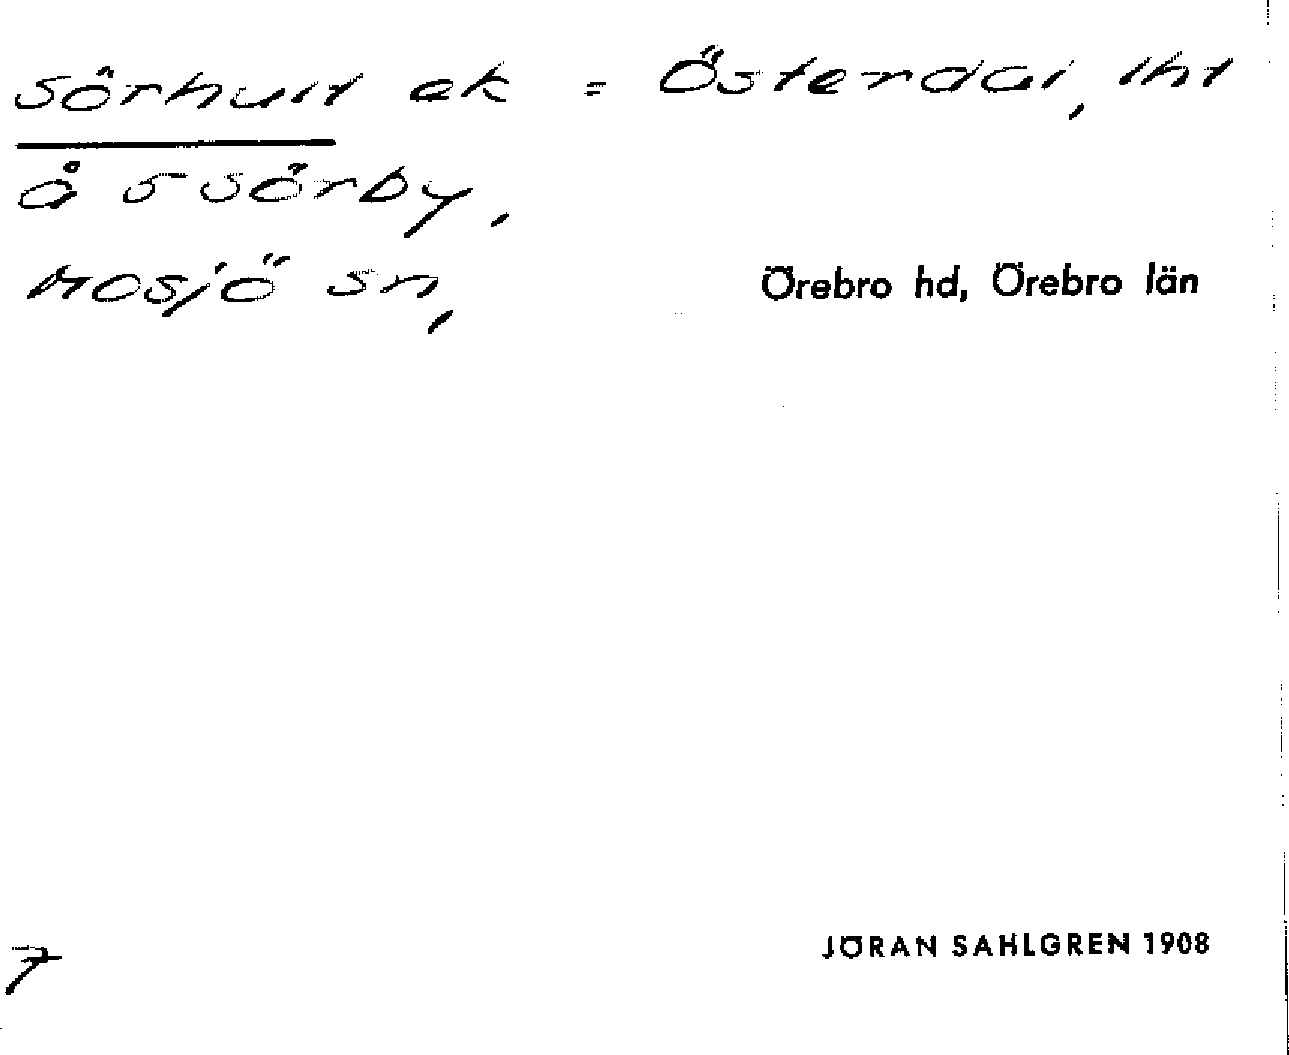 Sörhult ek = Österdal, lht
å 5 Sörby,
Mosjö sn,
Örebro hd, Örebro län
JÖRAN SAHLGREN 1908
7